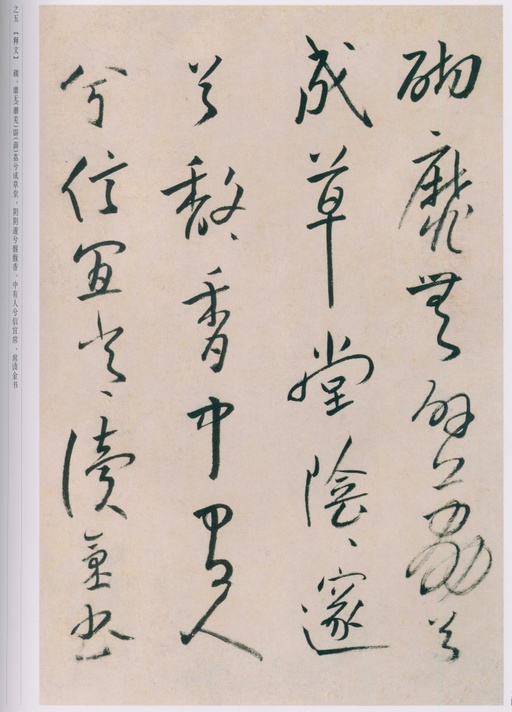 砌靡無辟荔兮
成草堂陰、邃
兮馥、香中有人
兮信宜常、讀金書
之五 【释文】 砌,靡无[蘼芜]辟[薜]荔兮成草堂,阴阴邃兮馥馥香,中有人兮信宜常,常读金书